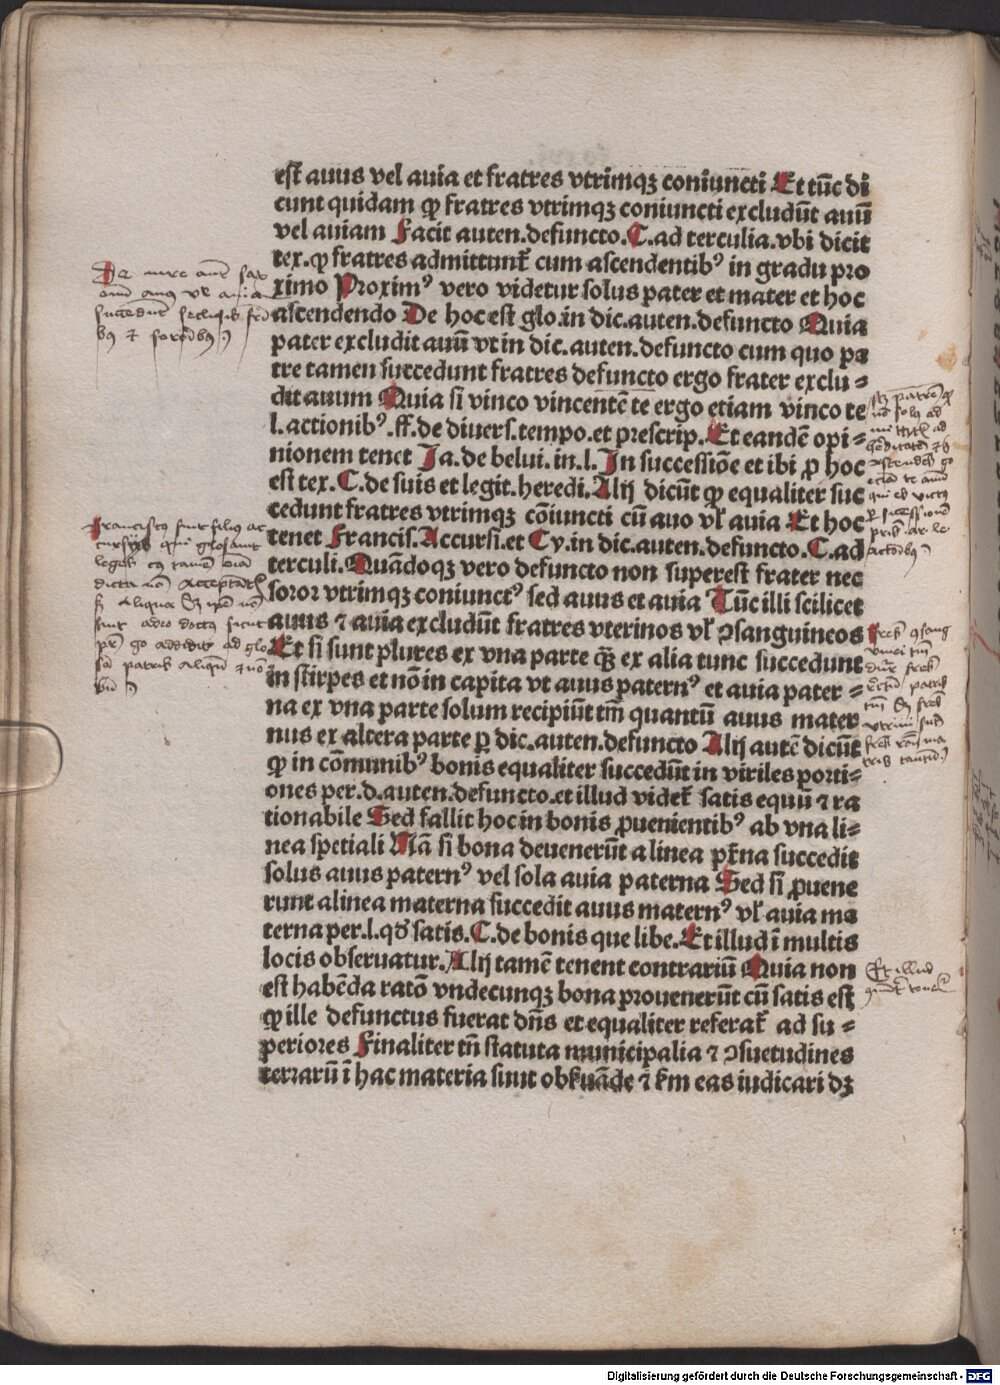 est auus vel auia et fratres vtrimqꝫ coniuncti Et tūc di
cunt quidam ꝙ fratres vtrimqꝫ coniuncti excludūt auū
vel auiam Facit auten.defuncto.C.ad terculia.vbi dicit
tex.ꝙ fratres admittunt᷑ cum ascendentibꝰ in gradu pro
ximo Proximꝰ vero videtur solus pater et mater et hoc
ascendendo De hoc est glo.in dic.auten.defuncto Quia
pater excludit auū vt in dic.auten.defuncto cum quo pa
tre tamen succedunt fratres defuncto ergo frater exclu⸗
dit auum Quia si vinco vincentē te ergo etiam vinco te
l.actionibꝰ.ff.de diuers.tempo.et prescrip.Et eandē opi⸗
nionem tenet Ja.de belui.in.l.In successiōe et ibi ꝓ hoc
est tex.C.de suis et legit.heredi.Alij dicūt ꝙ equaliter suc
cedunt fratres vtrimqꝫ cōiuncti cū auo vl᷑ auia Et hoc
tenet Francis.Accursi.et Cy.in dic.auten.defuncto.C.ad
terculi.Quādoqꝫ vero defuncto non superest frater nec
soror vtrimqꝫ coniunctꝰ sed auus et auia Tūc illi scilicet
auus ⁊ auia excludūt fratres vterinos vl᷑ ꝯsanguineos
Et si sunt plures ex vna parte qꝫ̄ ex alia tunc succedunt
in stirpes et nō in capita vt auus paternꝰ et auia pater⸗
na ex vna parte solum recipiūt tm̄ quantū auus mater
nus ex altera parte ꝑ dic.auten.defuncto Alij autē dicūt
ꝙ in cōmunibꝰ bonis equaliter succedūt in viriles porti⸗
ones per.d.auten.defuncto.et illud videt᷑ satis equū ⁊ ra
tionabile Sed fallit hoc in bonis ꝓuenientibꝰ ab vna li⸗
nea spetiali Nā si bona deuenerūt a linea pr̄na succedit
solus auus paternꝰ vel sola auia paterna Sed si ꝓuene
runt a linea materna succedit auus maternꝰ vl᷑ auia ma
terna per.l.qđ satis.C.de bonis que libe.Et illud ī multis
locis obseruatur.Alij tamē tenent contrariū Quia non
est habēda ratō vndecunqꝫ bona prouenerūt cū satis est
ꝙ ille defunctus fuerat dn̄s et equaliter referat᷑ ad su⸗
periores Finaliter tn̄ statuta municipalia ⁊ ꝯsuetudines
terrarū ī hac materia sunt obẜuāde ⁊ ẜm eas iudicari dꝫ
De iure
auus vel auia
succedunt
Franciscus fuit filius ac
cursij qui glosauit
leges
dicta non
Et illud
Digitalisierung gefördert durch die Deutsche Forschungsgemeinschaft - DFG